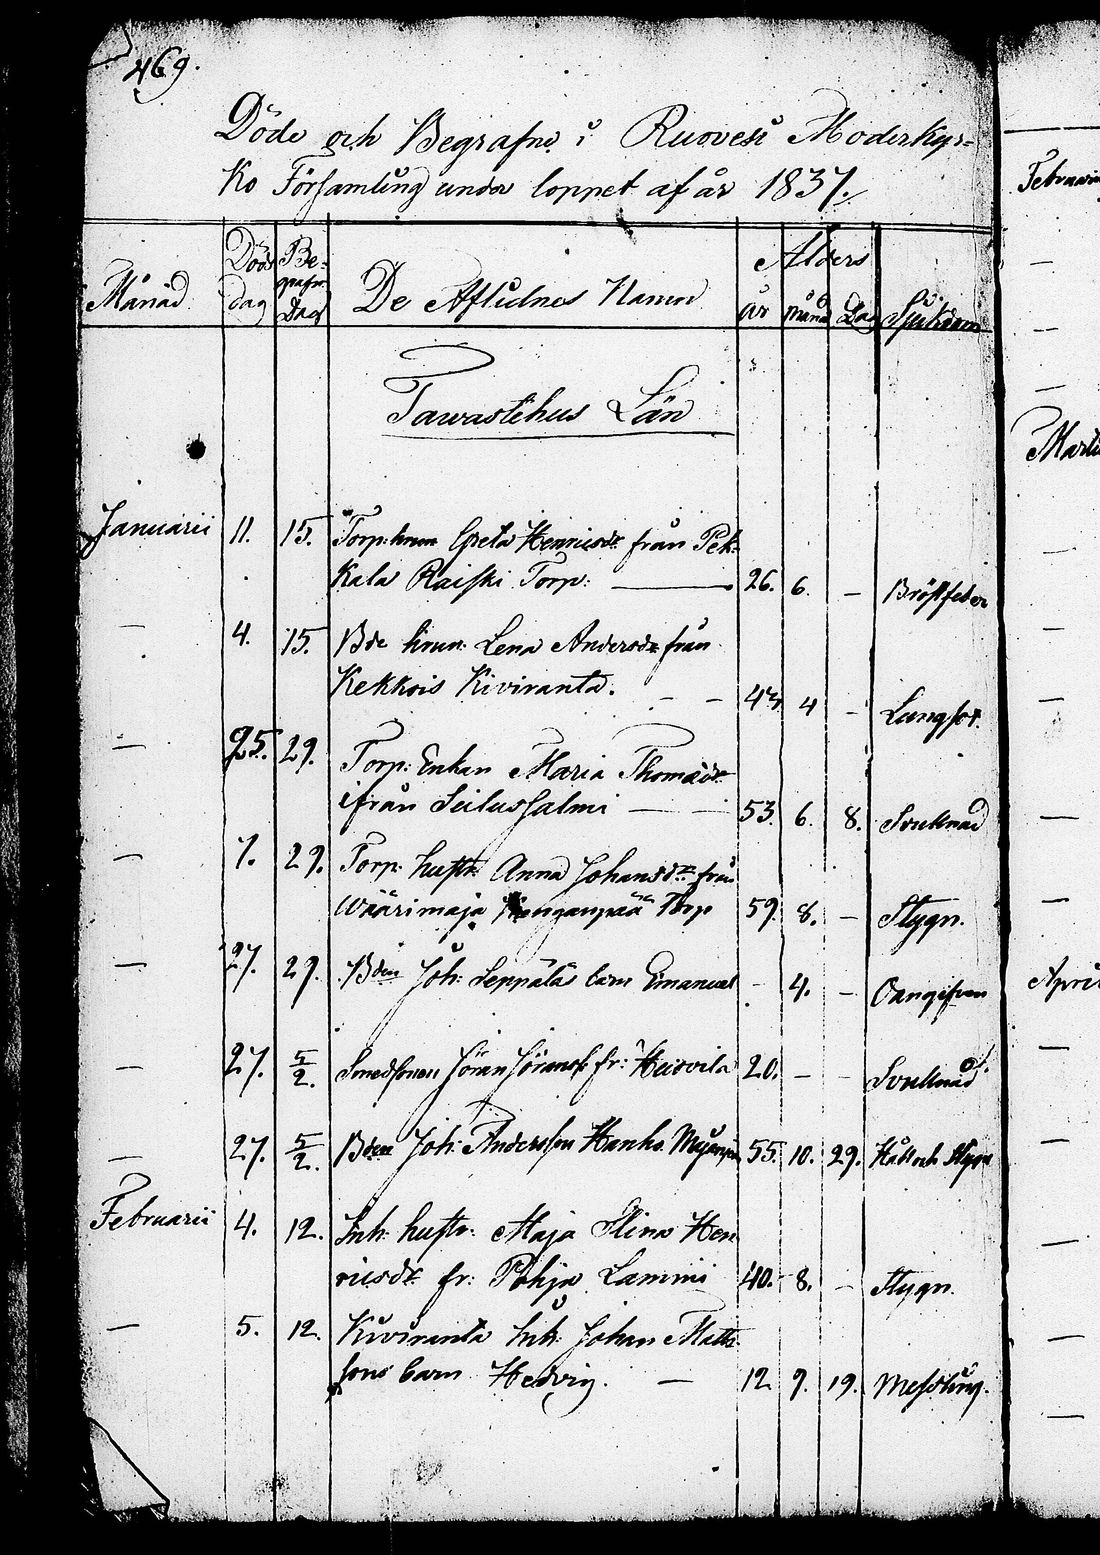 469.
Döde och Begrafne i Ruovesi Moderkyr=
ko Församling under loppet af år 1837.
Månad
Döds dag
Be-
grafn:
Dag
De Aflidnes Namn
Ålders
år månad Dag
Sjukdom
Tawastehus Län
Januarii 11. 15. Torp: hrun Greta Henricsdr från Pek-
kala Raiski Torp: — 26. 6. — Bröstfeber
— 4. 15. Bde hrun: Lena Andersdr från
Kekkois Kiviranta. — — 43 4 — Lungsot.
— 25. 29. Torp: Enkan Maria Thomasdr
ifrån Seilussalmi — — 53. 6. 8. Svullnad
— 7. 29. Torp: hustr: Anna Johansdr från
Wäärimaja Torp 59. 8. — Stygn.
— 27. 29. Bden Joh: Seppälä barn Emanuel — 4. — Oangifven
— 27. 5/2. Smedsonen Jöran Jöransf fr: 20. — — Svullnad
— 27. 5/2. Bden Joh: Andersson Hanho 55. 10. 29. Håll och Stygn
Februarii 4. 12. Inh: hustr: Maja Stina Hen
ricsdr fr: Pohja Lammi 40. 8. — Stygn.
— 5. 12. Kiviranta Inh: Johan Matts
sons barn Hedvig. — 12 9. 19. Messling.
Februarii
—
—
—
Marti
—
—
—
—
Apri
—
—
—
—
—